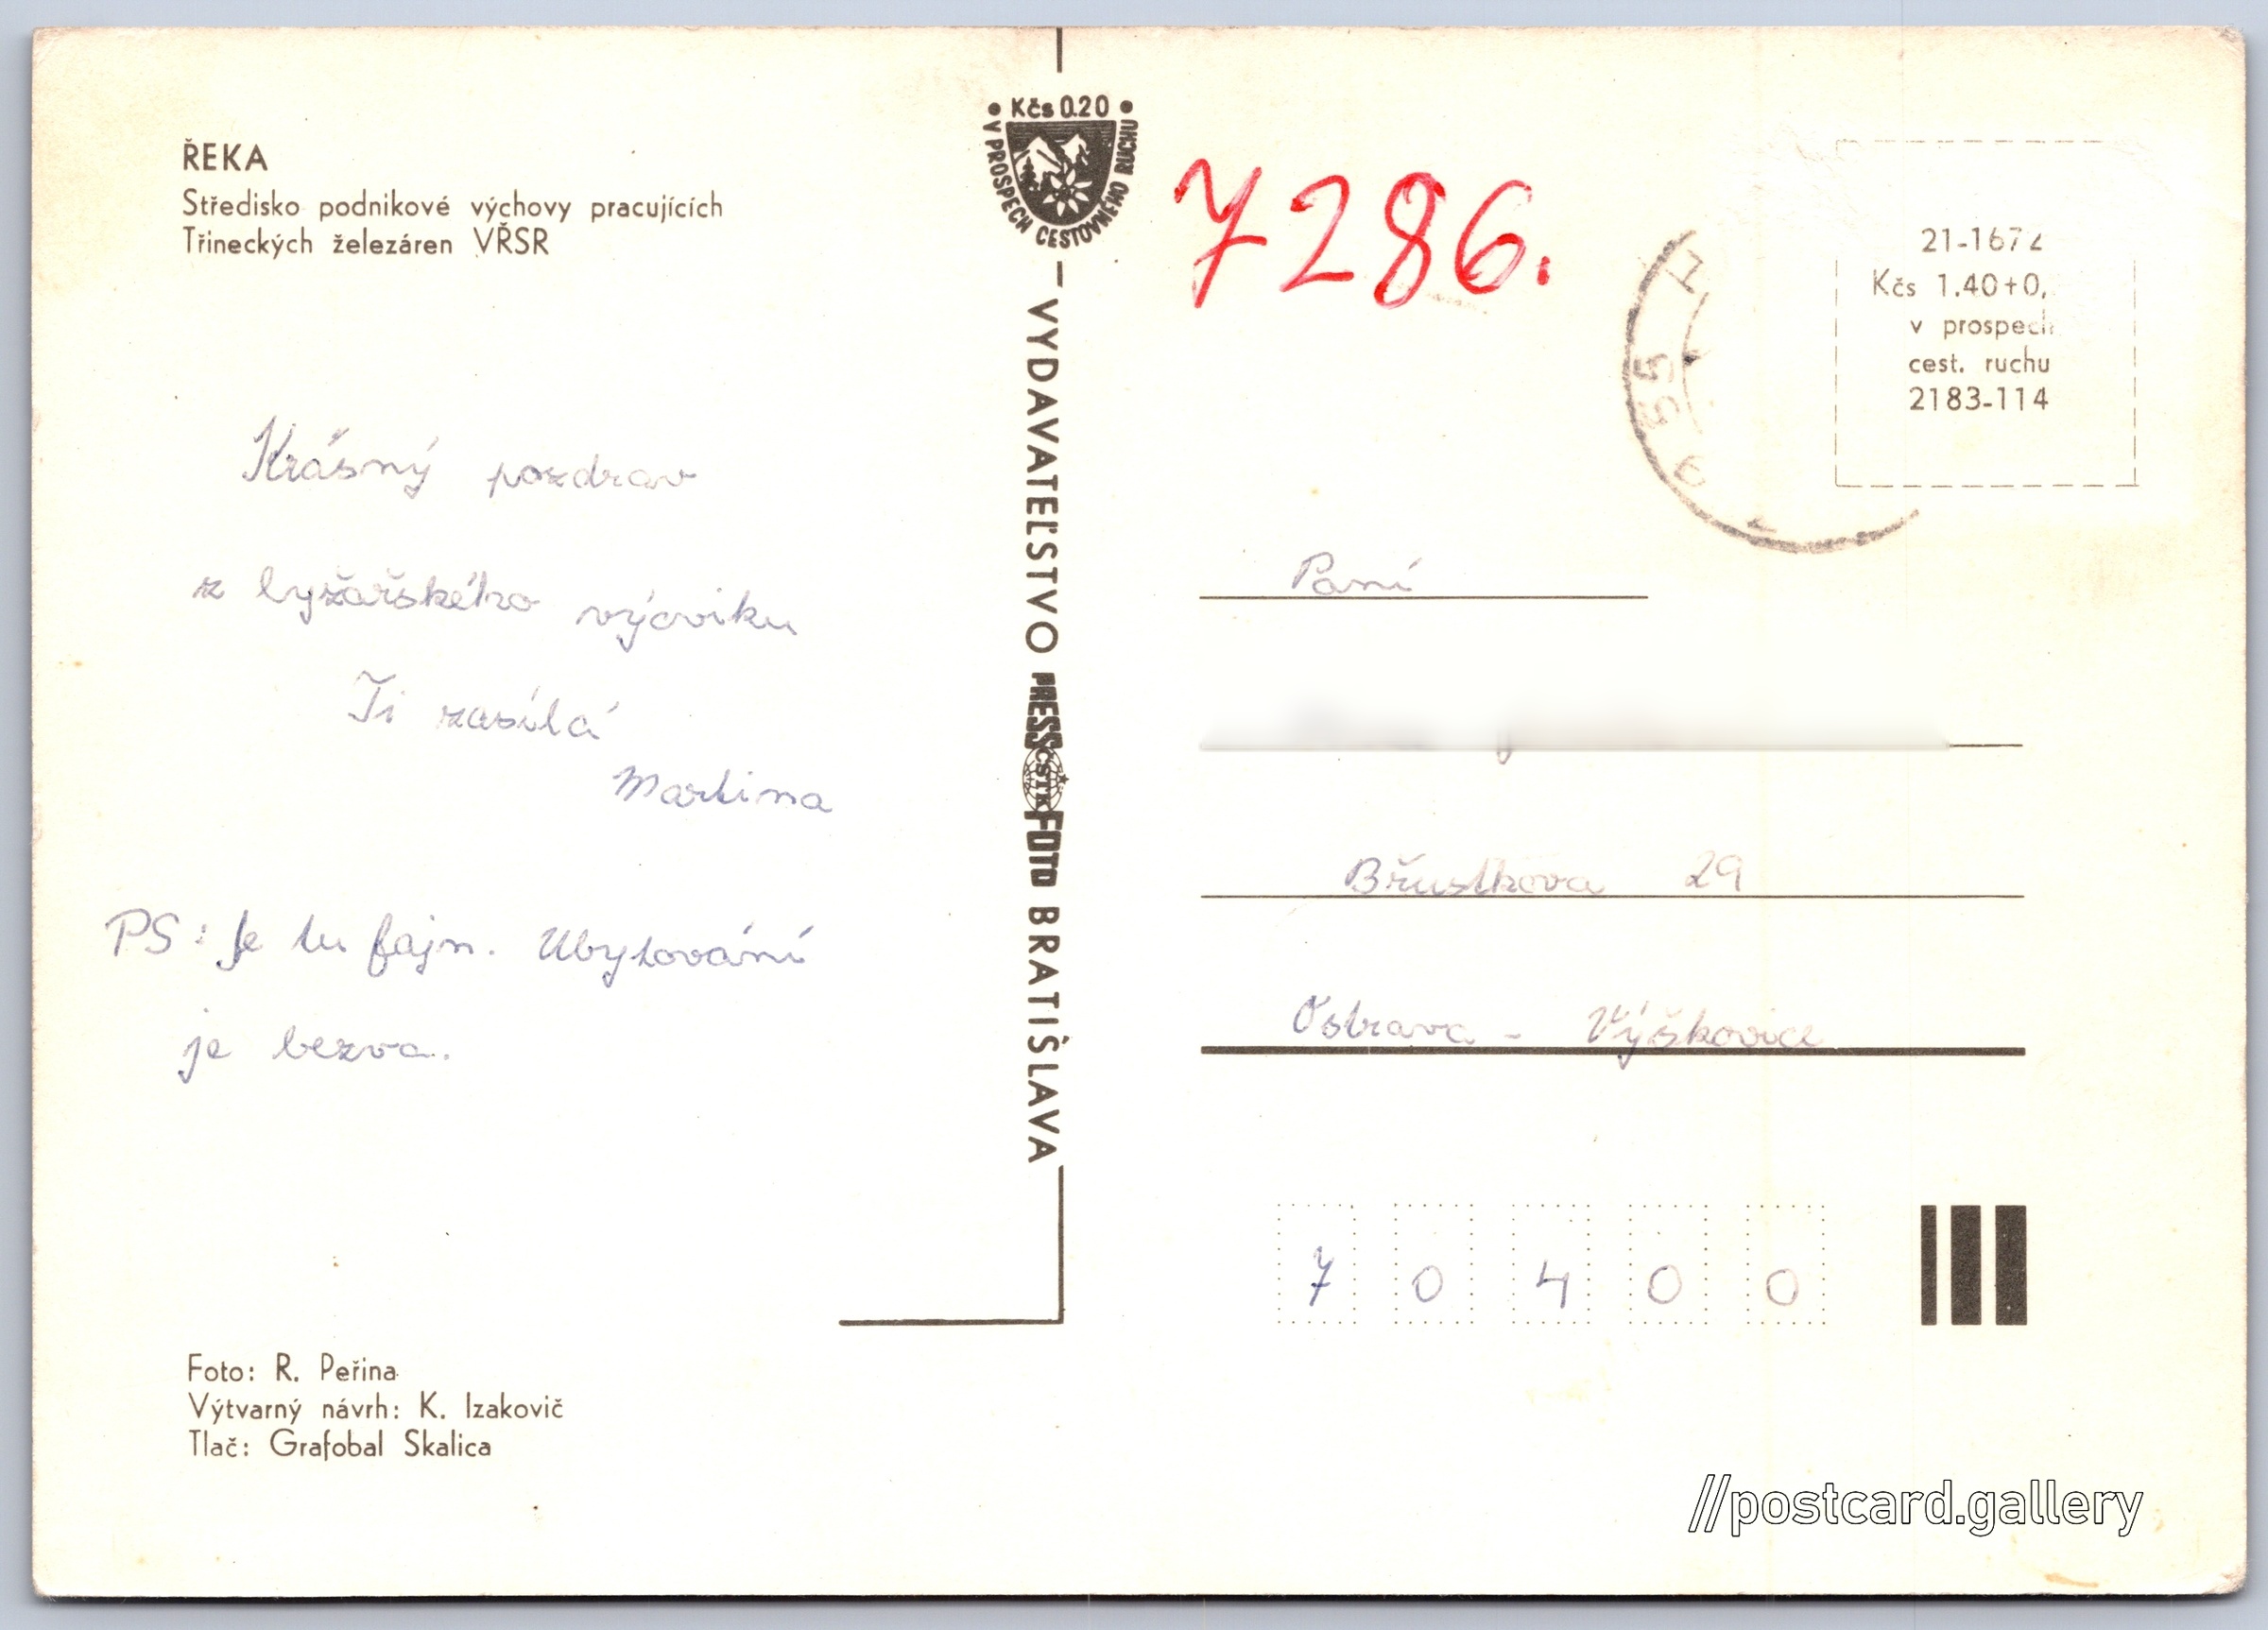 ŘEKA
Středisko podnikové výchovy pracujících
Třineckých železáren VŘSR
Krásný pozdrav
z lyžařského výcviku
Ti zasílá
Martina
PS: Je tu fajn. Ubytování
je bezva.
Foto: R. Peřina
Výtvarný návrh: K. Izakovič
Tlač: Grafobal Skalica
• Kčs 0.20 •
V PROSPECH CESTOVNÉHO RUCHU
VYDAVATEĽSTVO PRESSFOTO BRATISLAVA
ČSTK
7286.
21-1672
Kčs 1.40+0,
v prospech
cest. ruchu
2183-114
Paní
29
Ostrava - Výškovice
7 0 4 0 0
//postcard.gallery